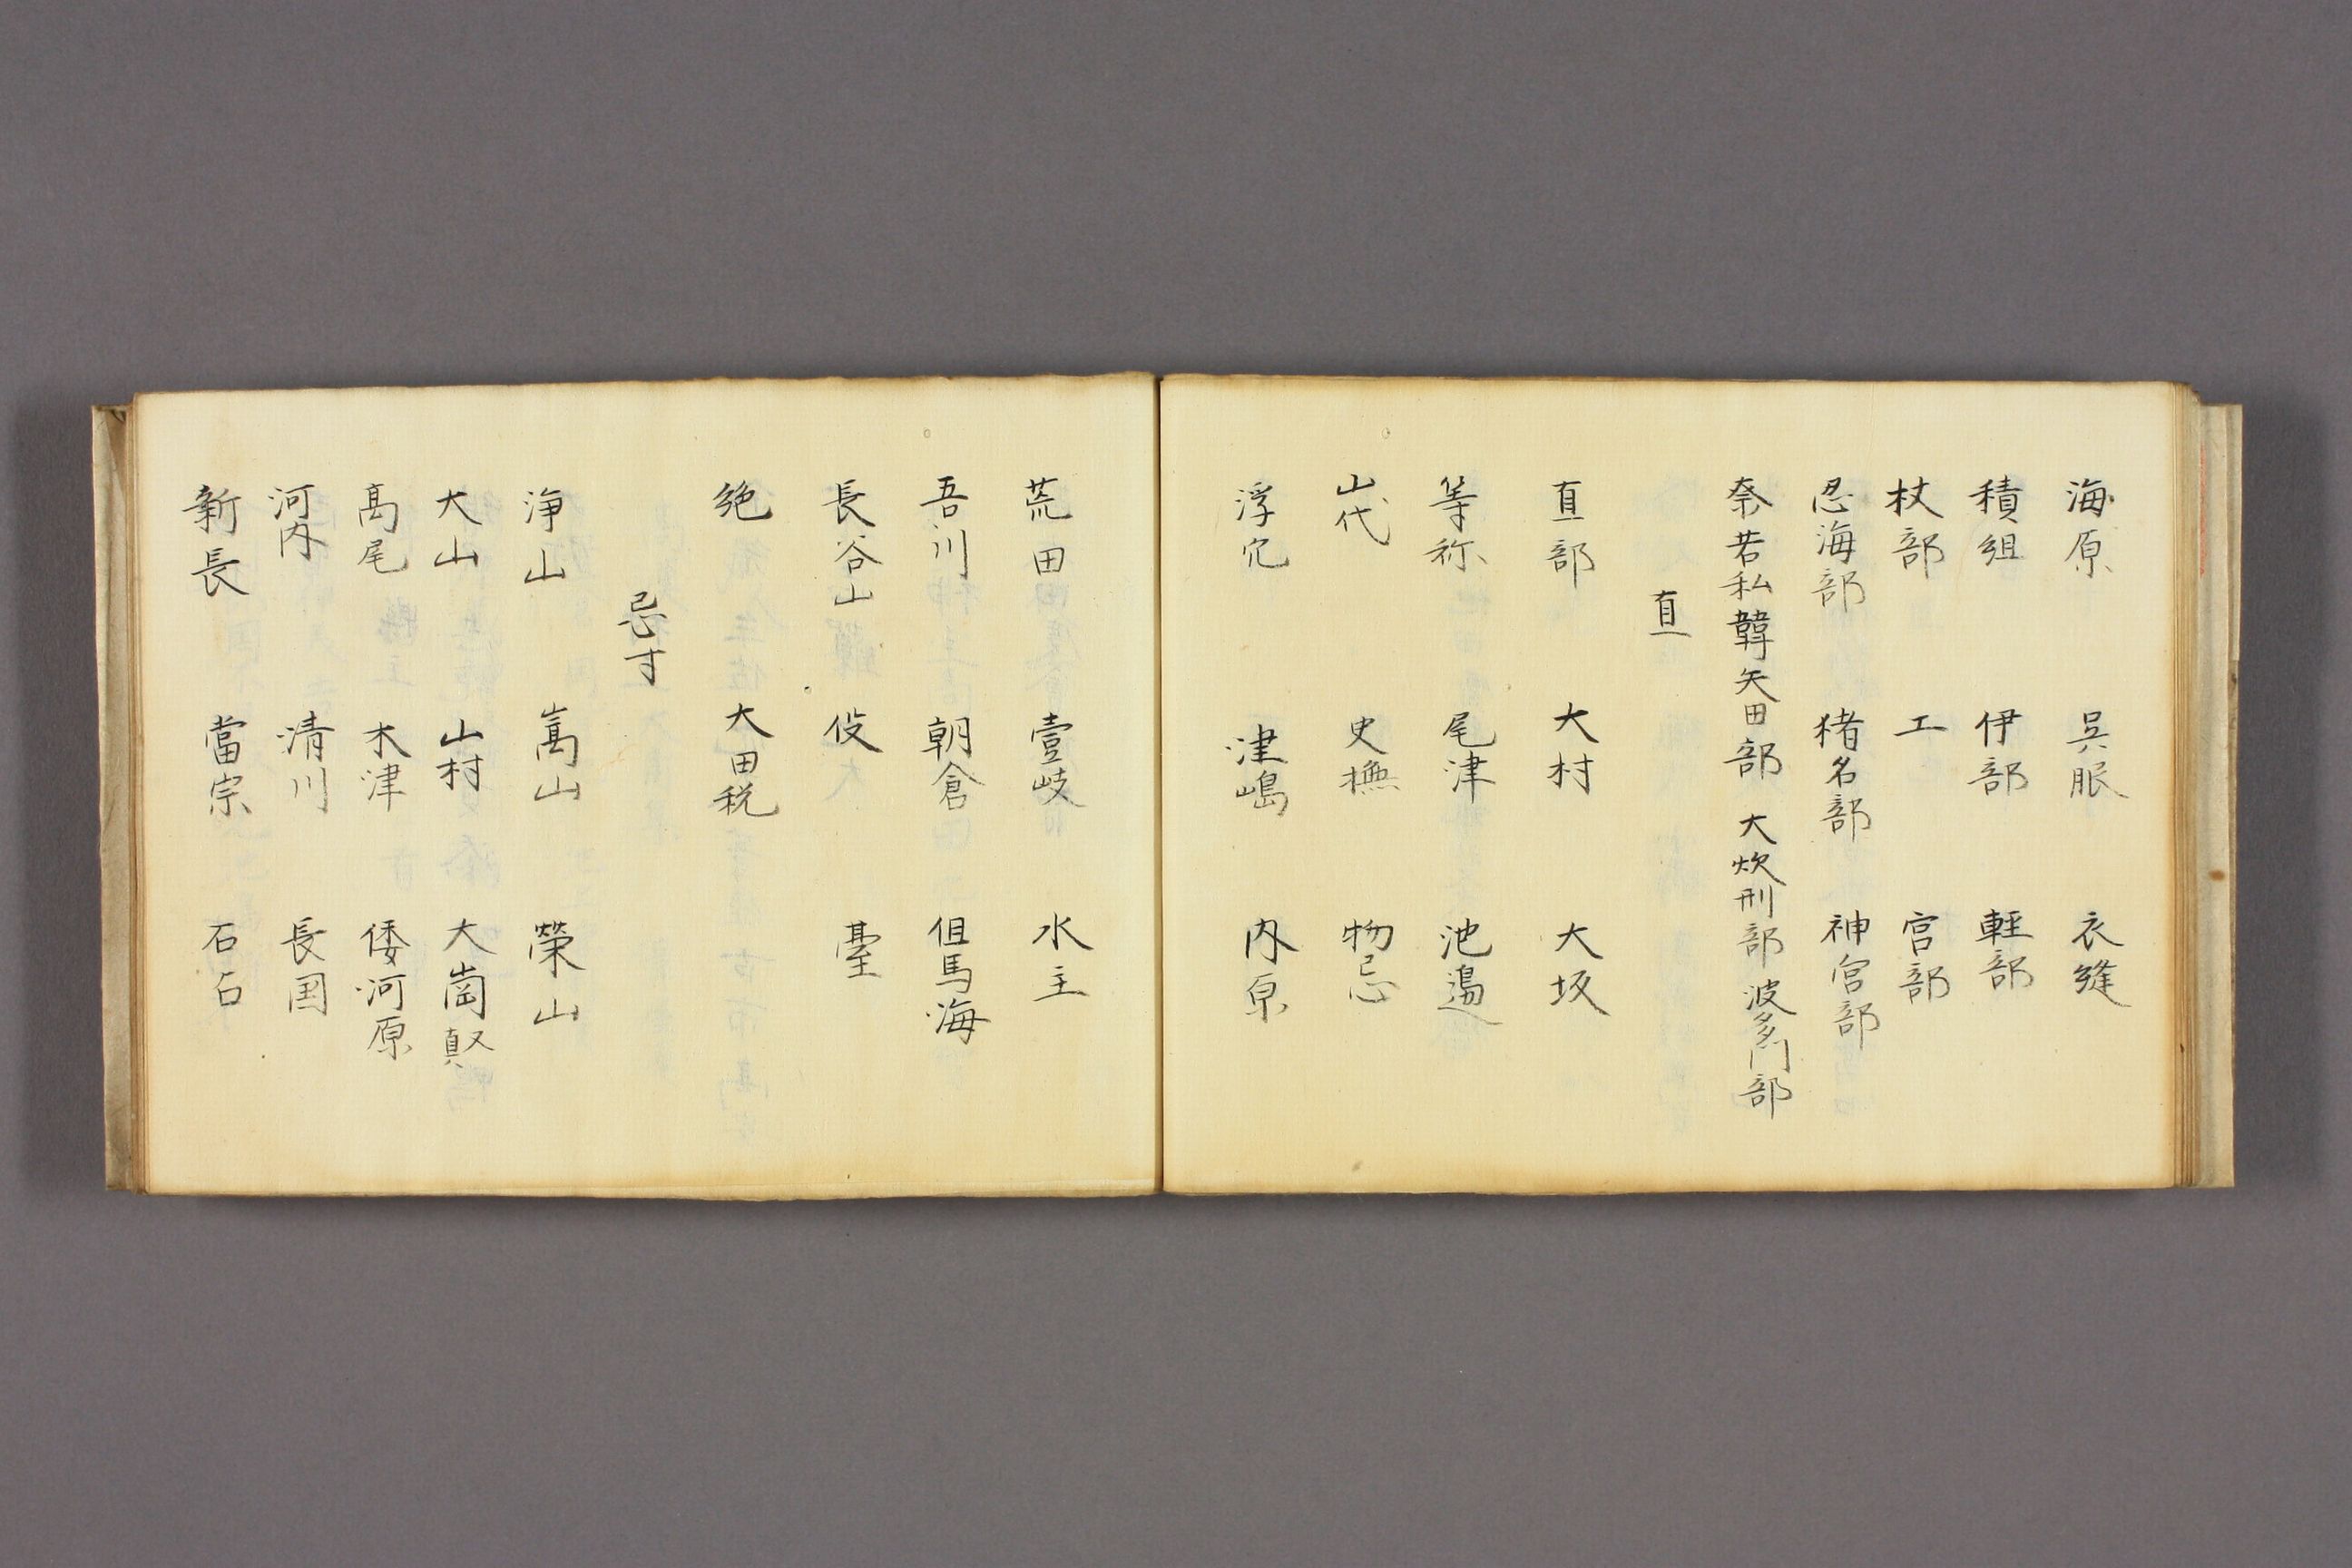 海原 呉服 衣縫
積組 伊部 軽部
杖部 工 宮部
忍海部 猪名部 神宮部
奈 若 私 韓 矢田部 大炊刑部 波多門部
直
直部 大村 大坂
等祢 尾津 池邉
山代 史撫 物忌
浮穴 津嶋 内原
荒田 壹岐 水主
吾川 朝倉 但馬海
長谷山 伇 臺
絶 大田税
忌寸
浄山 嵩山 榮山
大山 山村 大崗
髙尾 木津 倭河原
河内 清川 長国
新長 當宗 石占